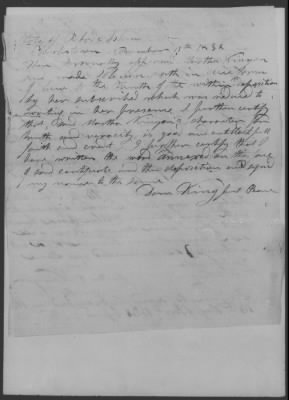 State of Rhode Island
Charlestown December 13th 1836
Then personally appeared Martha Kinyon
and made solemn oath in due form
of law to the truth of the within deposition
by her subscribed which was reduced to
writing in her presence I further certify
that said Martha Kinyon's character for
truth and veracity is good and entitled to full
faith and credit I further certify that I
have written the word annexed on the
said certificate and this deposition and signed
my name to the same
King Just Peace